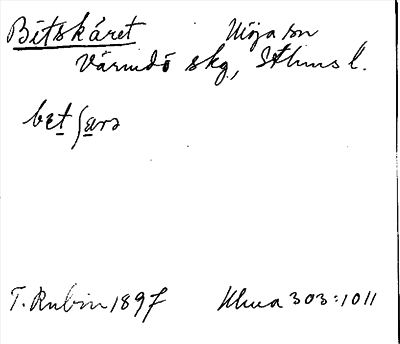 Betskäret Nöja sn
Värmdö skg, Sthms l.
betʃærə
T. Rubin 1897 Uuua 303:1011